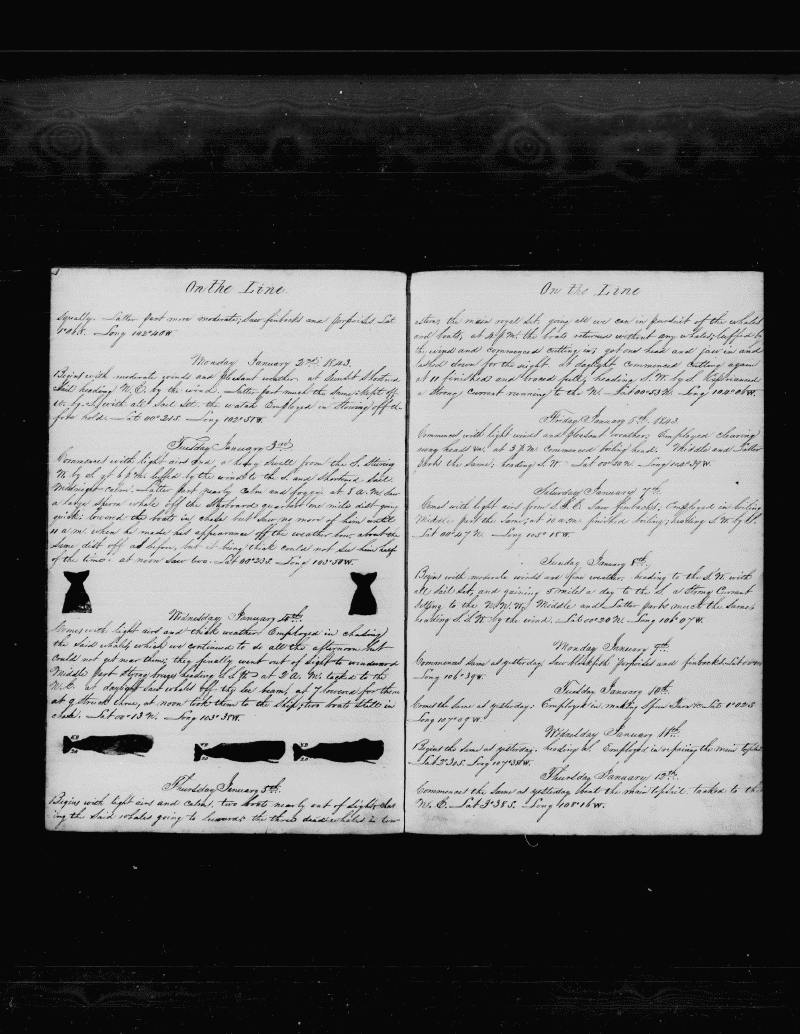 On the Line
Squally. Latter part more moderate; Saw finbacks and porpoises Lat
1°06S. Long 102°40W.
Monday January 2nd. 1843.
Begins with moderate winds and pleasant weather, at Sunset Shortened
Sail heading N. E. by the wind. Latter part much the Same; Kept off
with all Sail Set. the watch Employed in Stowing off the
fore hold. Lat 00°21S. Long 102°58W.
Tuesday January 3rd.
Commences with light airs and a heavy Swell from the S. Steering
W. by S. at 6 P.M. luffed by the wind to the S. and Shortened Sail.
Midnight calm. Latter part nearly calm and foggy; at 8 A.M. Saw
a large Sperm whale off the Starboard quarter one miles dist going
quick; lowered the boats in chase but Saw no more of him until
11 a.m. when he made his appearance off the weather bow about the
Same dist off as before, but it being thick could not See him half
of the time. at noon Saw two. Lat 00°23S Long 103°50W.
Wednesday January 4th.
Comes with light airs and thick weather Employed in chasing
the Said whales which we continued to do all the afternoon but
could not get near them; they finally went out of Sight to windward
Middle part Strong breezes heading S.S.W. at 2 A.M. tacked to the
N.E. at daylight Saw whales off the lee beam, at 7 lowered for them
at 9 Struck three, at noon took them to the Ship; two boats Still in
chase. Lat 00°13 N. Long 103°35W.
Thursday January 5th.
Begins with light airs and calms, two boats nearly out of Sight chas
ing the Said whales going to leeward; the three dead whales in tow
On the Line
astern, the main royal Set, going all we can in pursuit of the whales
and boats, at 4 P.M. the boats returned without any whales; luffed by
the wind and commenced cutting in; got one head and jaw in and
lashed down for the night. at daylight commenced Cutting again
at 11 finished and braced full; heading S.W. by S. Experienced
a Strong current running to the N. Lat 00°53 N. Long 104°08W.
Friday January 6th. 1843.
Commences with light winds and pleasant weather; Employed clearing
away heads &c. at 3 P.M. commenced boiling head. Middle and Latter
parts the Same; heading S.W. Lat 00°50 N. Long 104°39W.
Saturday January 7th.
Comes with light airs from S.S.E. Saw finbacks; Employed in boiling
Middle part the Same; at 10 a.m. finished boiling; heading S.W. by W.
Lat 00°47 N. Long 105°18W.
Sunday January 8th.
Begins with moderate winds and fine weather. heading to the S.W. with
all Sail Set, and gaining 5 miles a day to the S. a Strong Current
Setting to the N.N.W. Middle and Latter parts much the Same;
heading S.S.W. by the wind. Lat 00°20 N. Long 106°07W.
Monday January 9th.
Commences Same as yesterday. Saw blackfish porpoises and finbacks. Lat
Long 106°39W.
Tuesday January 10th.
Comes the Same as yesterday: Employed in making Spun Yarn &c. Lat 1°02S
Long 107°09W.
Wednesday January 11th.
Begins the Same as yesterday. heading W. Employed in repairing the main topsail
Lat 2°30S. Long 107°38W.
Thursday January 12th.
Commences the Same as yesterday bent the main topsail. tacked to the
N.E. Lat 3°38S. Long 108°16W.